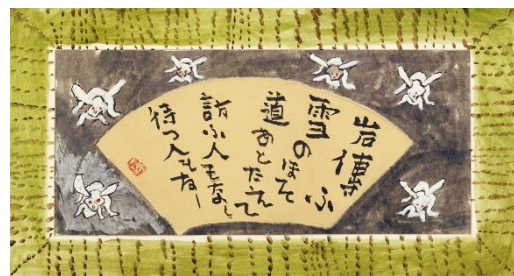 岩傳ふ
雪のほそ
道あとたえて
訪ふ人もなし
待つ人もなし